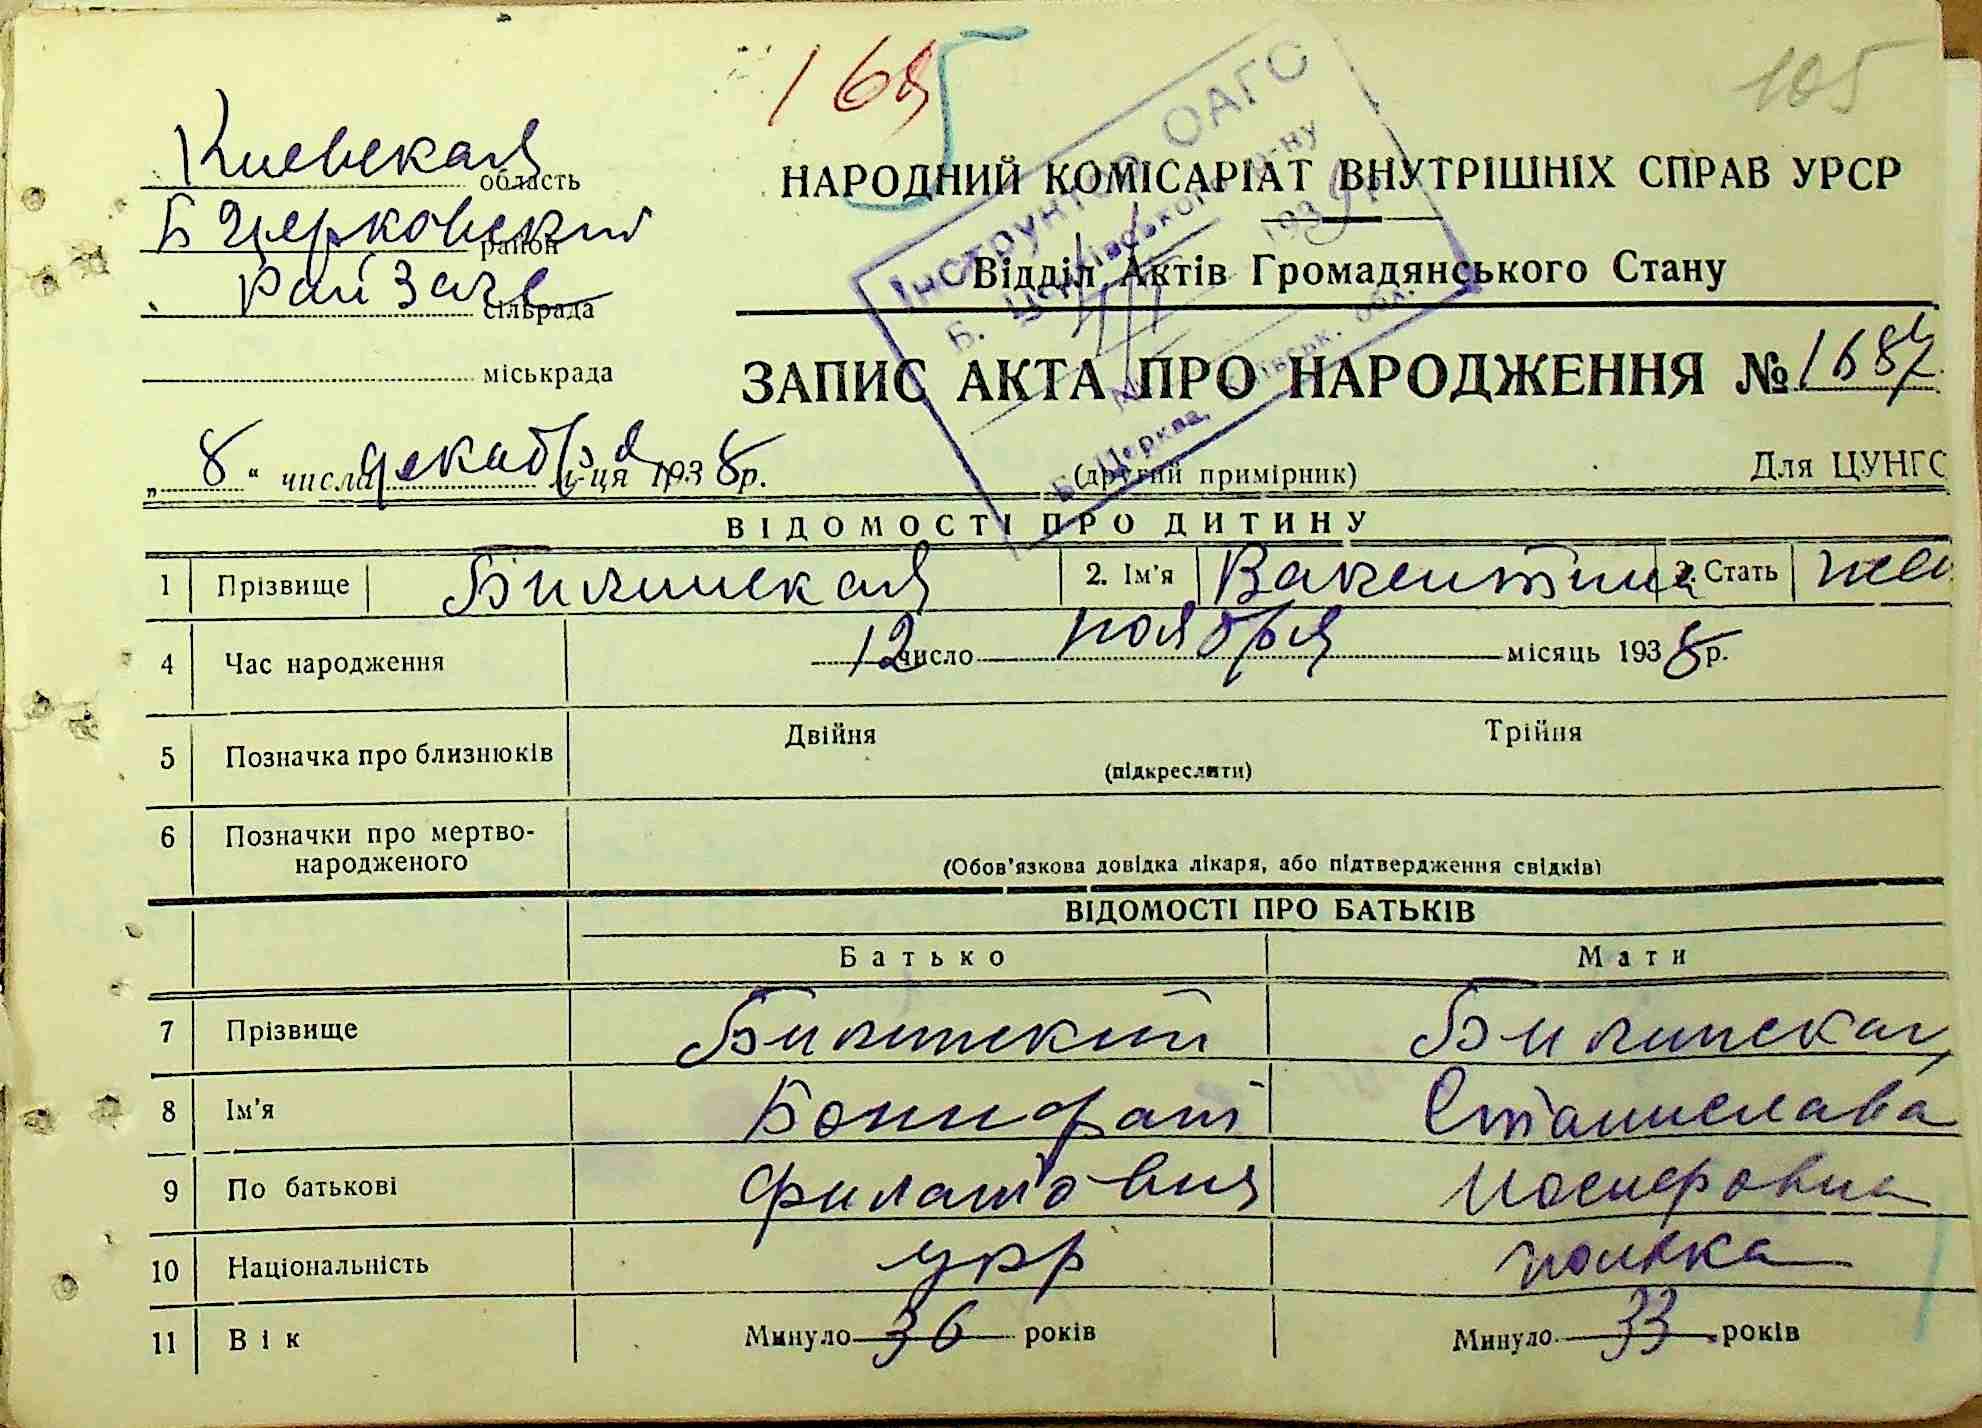 165
105
Киевская область
Б Церковский район
Рай Загс сільрада
міськрада
НАРОДНИЙ КОМІСАРІАТ ВНУТРІШНІХ СПРАВ УРСР
Відділ Актів Громадянського Стану
Інструктор ОАГС
Б. Церківського р-ну
1939 р.
Київськ. обл.
Б. Церква
ЗАПИС АКТА ПРО НАРОДЖЕННЯ № 1687
„8“ числа декабря м-ця 1938 р.
(другий примірник)
Для ЦУНГС
ВІДОМОСТІ ПРО ДИТИНУ
1 Прізвище Билинская 2. Ім'я Валентина 3. Стать жен
4 Час народження 12 число ноября місяць 1938 р.
5 Позначка про близнюків Двійня Трійня
(підкреслити)
6 Позначки про мертво-
народженого
(Обов'язкова довідка лікаря, або підтвердження свідків)
ВІДОМОСТІ ПРО БАТЬКІВ
Батько Мати
7 Прізвище Билинский Билинская
8 Ім'я Бонифат Станислава
9 По батькові Филатович Иосифовна
10 Національність укр полька
11 Вік Минуло 36 років Минуло 33 років